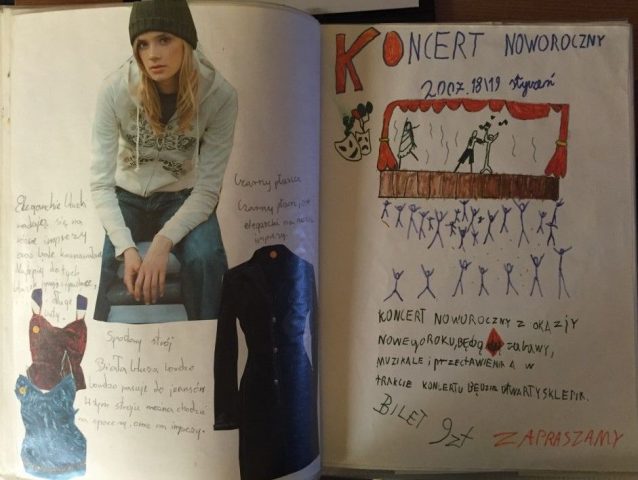 Eleganckie bluzki
nadają się na
różne imprezy
oraz bale karnawałowe
Najlepiej do tych
długie
buty.
Czarny płaszcz
Czarny płaszcz jest
elegancki na
imprezy.
Sportowy strój
Biała bluza bardzo
bardzo pasuje do jeansów
W tym stroju można chodzić
na spacery, oraz na imprezy.
KONCERT NOWOROCZNY
2007.18|19 styczeń
KONCERT NOWOROCZNY Z OKAZJY
NOWEGO ROKU, BĘDĄ ZABAWY,
MUZIKALE i PRZECTAWIENIA W
TRAKCIE KONCERTU BĘDZIE OTWARTY SKLEPIK.
BILET 9zł ZAPRASZAMY